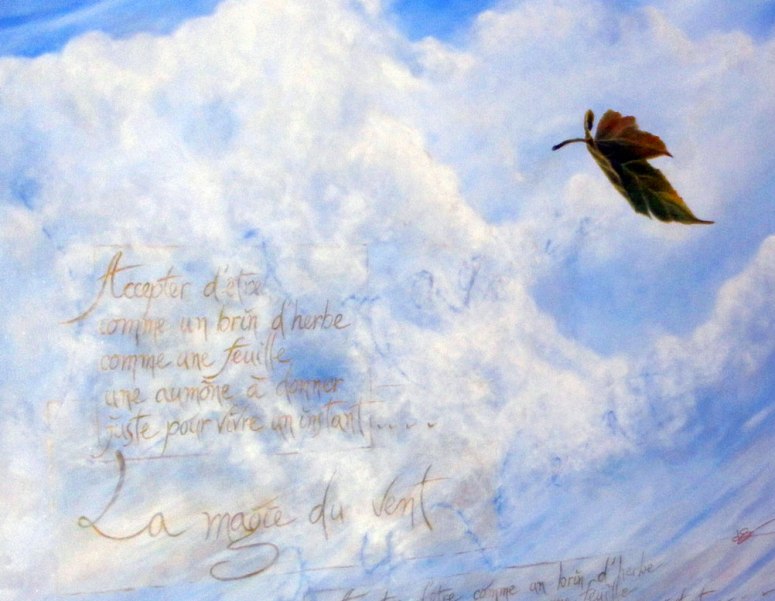 Accepter d'être
comme un brin d'herbe
comme une feuille
une aumône à donner
juste pour vivre un instant....
La magie du vent
d'être comme un brin d'herbe
feuille